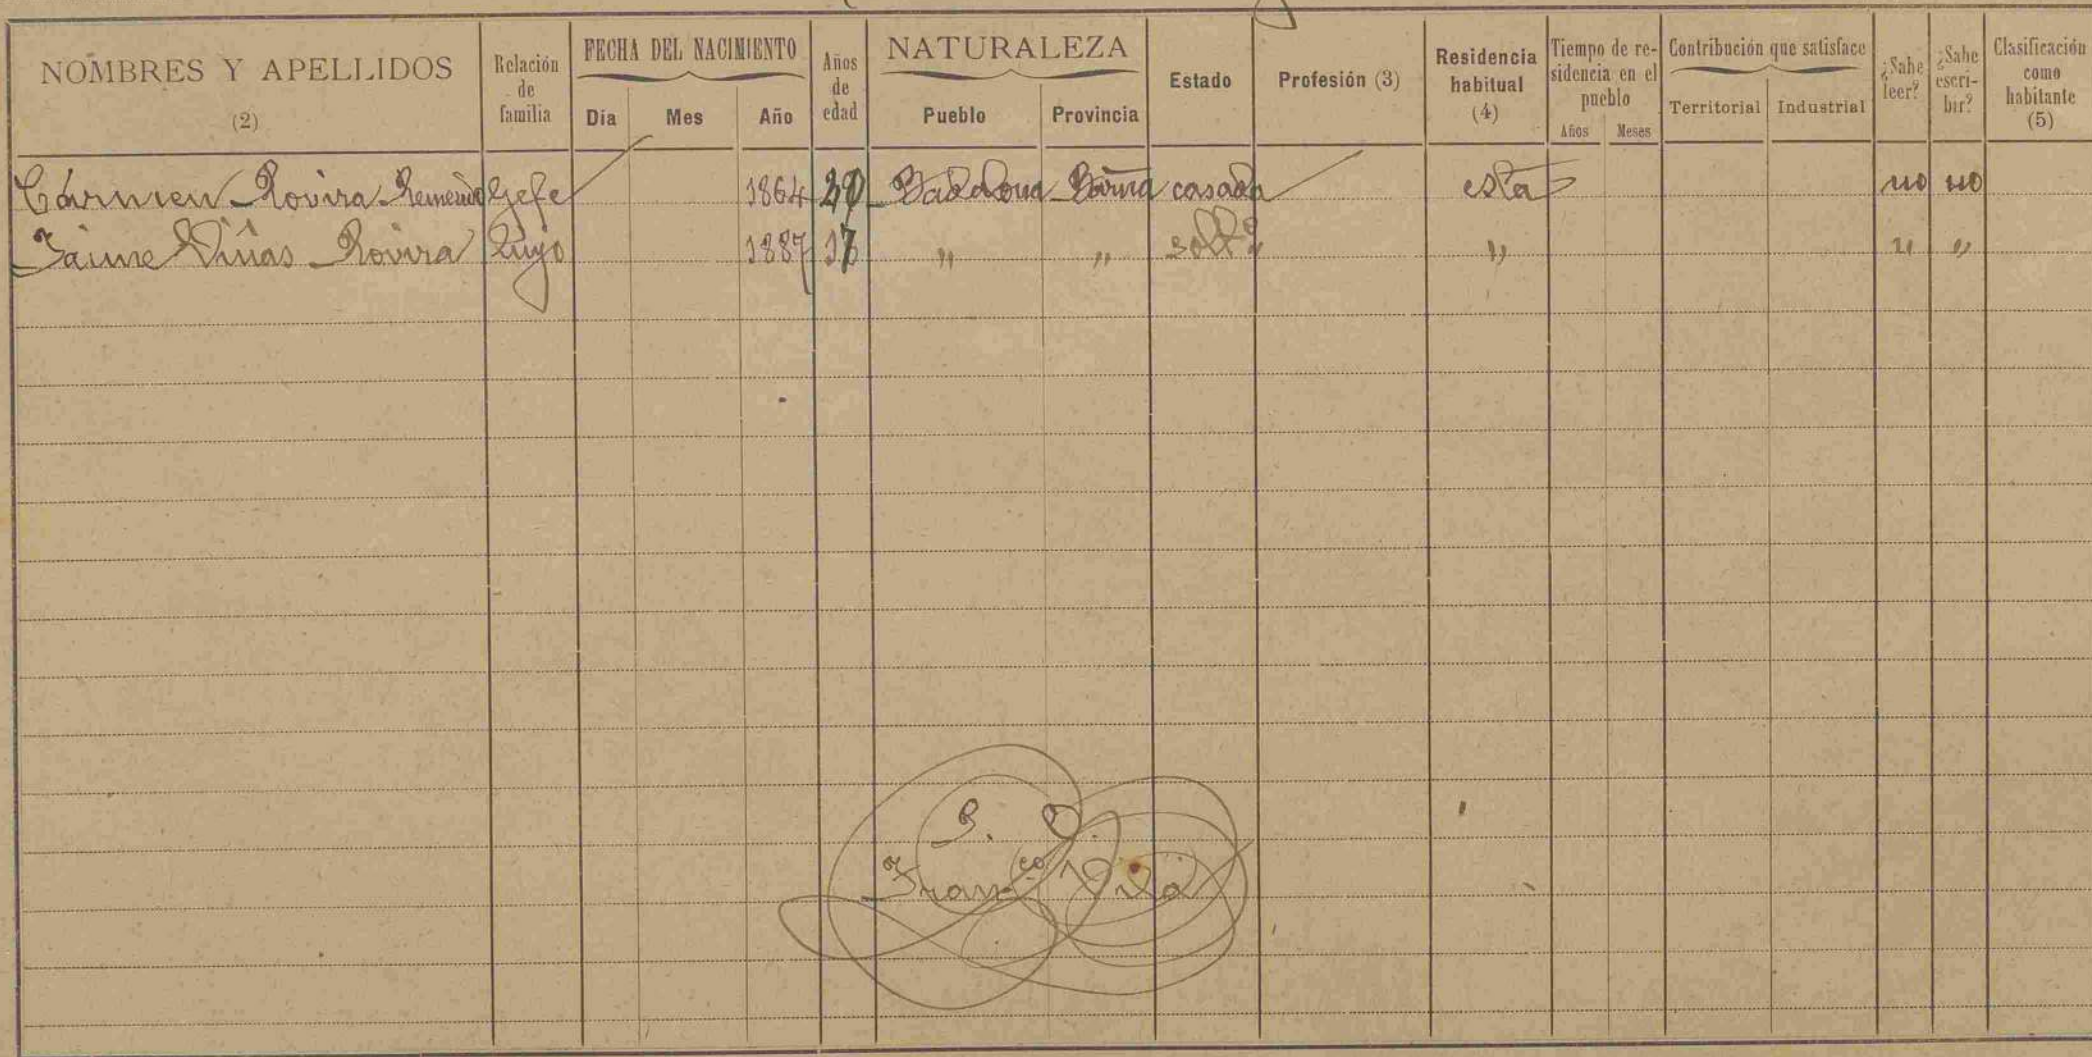 NOMBRES Y APELLIDOS (2) Relación de familia FECHA DEL NACIMIENTO Día Mes Año Años de edad NATURALEZA Pueblo Provincia Estado Profesión (3) Residencia habitual (4) Tiempo de residencia en el pueblo Años Meses Contribución que satisface Territorial Industrial ¿Sabe leer? ¿Sabe escribir? Clasificación como habitante (5)
Cármen Rovira Gefe 1864 Badalona Barna casada esta no no
Jaime Viñas Rovira hijo 1887 " " solt.º " " "
P. O.
Fran.co Vila